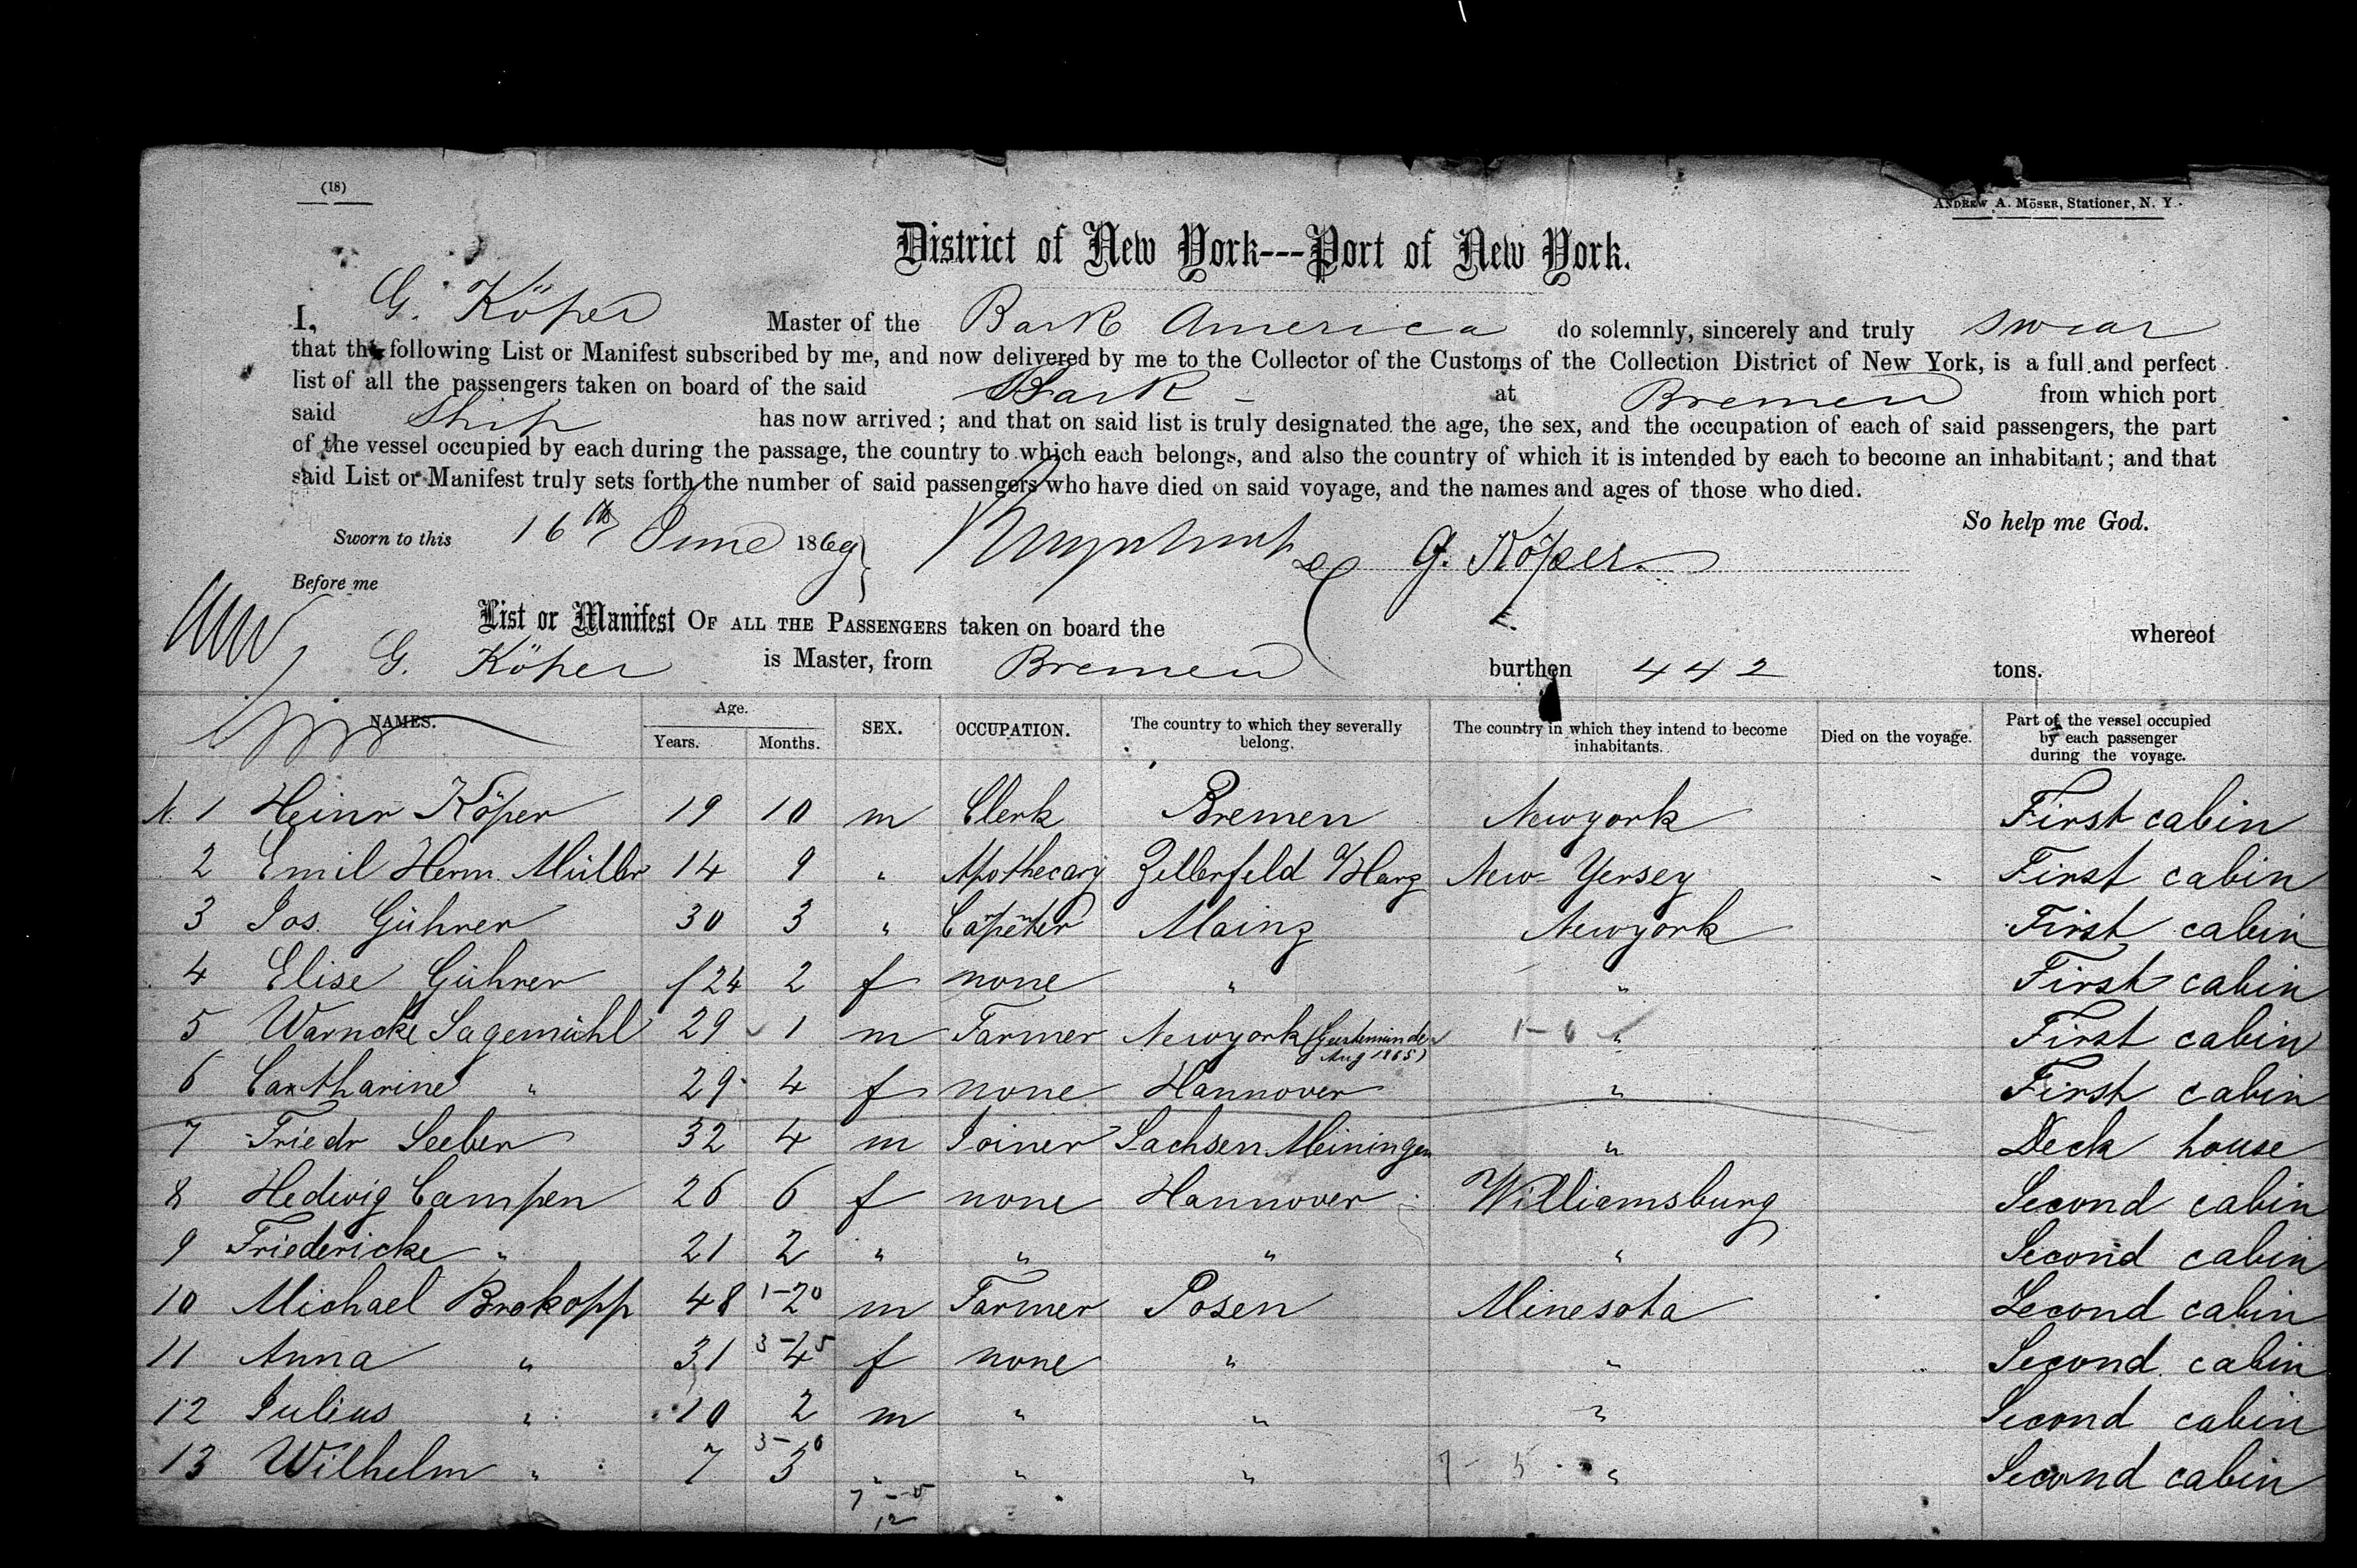 (18)
ANDREW A. MÖSER, Stationer, N. Y.
District of New York---Port of New York.
I, G. Köper Master of the Bark America do solemnly, sincerely and truly swear
that the following List or Manifest subscribed by me, and now delivered by me to the Collector of the Customs of the Collection District of New York, is a full and perfect
list of all the passengers taken on board of the said Bark - at Bremen from which port
said Ship has now arrived; and that on said list is truly designated the age, the sex, and the occupation of each of said passengers, the part
of the vessel occupied by each during the passage, the country to which each belongs, and also the country of which it is intended by each to become an inhabitant; and that
said List or Manifest truly sets forth the number of said passengers who have died on said voyage, and the names and ages of those who died.
So help me God.
Sworn to this 16th June 1869 G. Köper
Before me
List or Manifest OF ALL THE PASSENGERS taken on board the whereof
G. Köper is Master, from Bremen burthen 442 tons.
NAMES. Age. Years. Months. SEX. OCCUPATION. The country to which they severally belong. The country in which they intend to become inhabitants. Died on the voyage. Part of the vessel occupied by each passenger during the voyage.
N. 1 Heinr Köper 19 10 m Clerk Bremen Newyork First cabin
2 Emil Herm. Müller 14 9 " Apothecary Zellerfeld a/Harz New-Yersey - First cabin
3 Jos. Gührer 30 3 " Carpenter Mainz Newyork First cabin
4 Elise Gührer 24 2 f none " " First cabin
5 Warncke Sagemühl 29 1 m Farmer Newyork (Geestemünde Aug 1865) " First cabin
6 Catharine " 29 4 f none Hannover " First cabin
7 Friedr Seeber 32 4 m Joiner Sachsen Meiningen " Deck house
8 Hedwig Campen 26 6 f none Hannover Williamsburg Second cabin
9 Friedericke " 21 2 " " " " Second cabin
10 Michael Brokopp 48 1-20 2 m Farmer Posen Minesota Second cabin
11 Anna " 31 3-5 4 f none " " Second cabin
12 Julius " 10 2 m " " " Second cabin
13 Wilhelm " 7 3-6 3 " " " " Second cabin
7-5
12